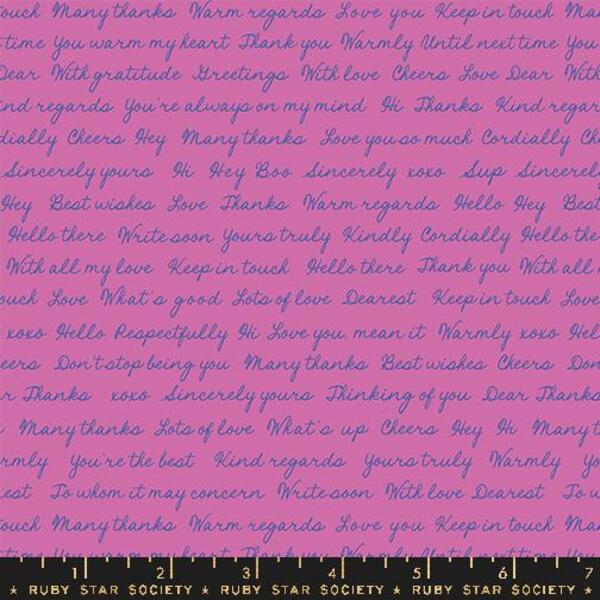 ouch Many thanks Warm regards Love you Keep in touch Man
time You warm my heart Thank you Warmly Until next time You
Dear With gratitude Greetings With love Cheers Love Dear With
nd regards You're always on my mind Hi Thanks Kind regar
dially Cheers Hey Many thanks Love you so much Cordially Ch
Sincerely yours Hi Hey Boo Sincerely xoxo Sup Sincerely
Hey Best wishes Love Thanks Warm regards Hello Hey Best
Hello there Write soon Yours truly Kindly Cordially Hello the
With all my love Keep in touch Hello there Thank you With all
ouch Love What's good Lots of love Dearest Keep in touch Love
xoxo Hello Respectfully Hi Love you, mean it Warmly xoxo Hel
eers Don't stop being you Many thanks Best wishes Cheers Don
r Thanks xoxo Sincerely yours Thinking of you Dear Thanks
Many thanks Lots of love What's up Cheers Hey Hi Many t
rmly You're the best Kind regards Yours truly Warmly Yo
est To whom it may concern Write soon With love Dearest To w
ouch Many thanks Warm regards Love you Keep in touch Man
time You warm my heart Thank you Warmly Until next time You
1 2 3 4 5 6 7
★ RUBY STAR SOCIETY ★ RUBY STAR SOCIETY ★ RUBY STAR SOCIETY ★